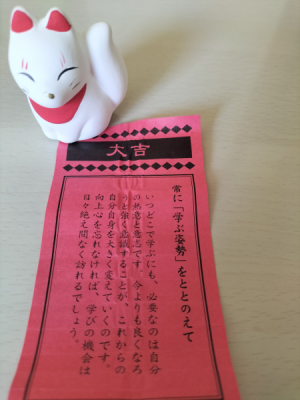 大吉
常に「学ぶ姿勢」をととのえて
いつどこで学ぶにも、必要なのは自分
の熱意と意志です。今よりも良くなろ
うと強く意識することが、これからの
自分自身を大きく変えていくのです。
向上心を忘れなければ、学びの機会は
日々絶え間なく訪れるでしょう。